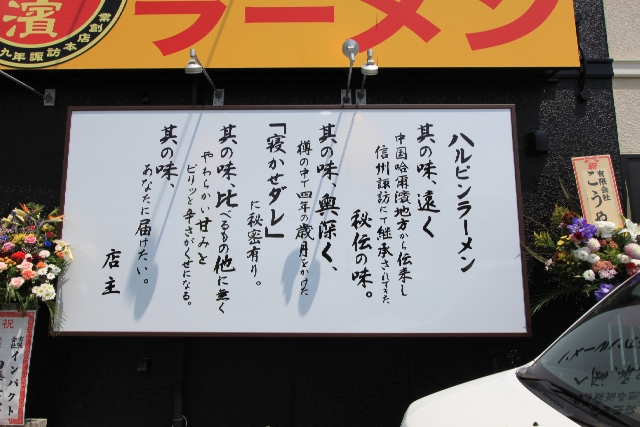 濱
九年諏訪本店 業創
ラーメン
ハルピンラーメン
其の味、遠く
中国哈爾濱地方から伝来し
信州諏訪にて継承されてきた
秘伝の味。
其の味、奥深く、
樽の中で四年の歳月をかけた
「寝かせダレ」
に秘密有り。
其の味、比べるもの他に無く
やわらかい甘みと
ピリッと辛さがくせになる。
其の味、
あなたに届けたい。
店主
祝
有限会社
こうめ
祝
有限会社 インパクト